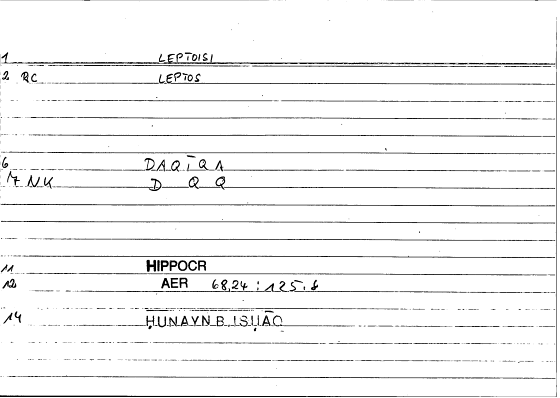 1 LEPTOISI
2 RC LEPTOS
6 DAQĪQA
7 NK D Q Q
11 HIPPOCR
12 AER 68,24 : 125.8
14 ḤUNAYN B. ISḤĀQ